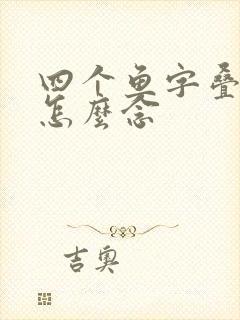 四个鱼字叠
怎麼念
吉奥